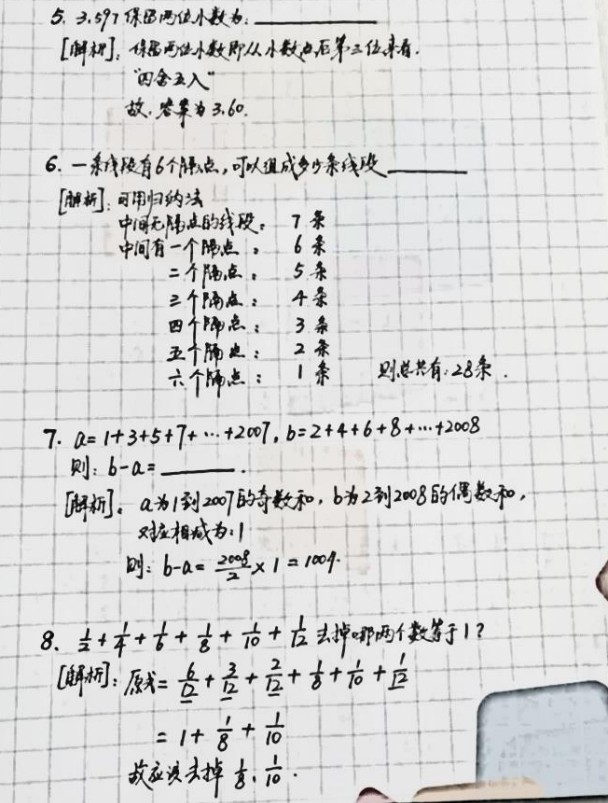 5. 3.597保留两位小数为:
[解析]: 保留两位小数即从小数点后第三位来看.
"四舍五入"
故, 答案为3.60.
6. 一条线段有6个隔点, 可以组成多少条线段
[解析]: 可用归纳法
中间无隔点的线段: 7条
中间有一个隔点: 6条
二个隔点: 5条
三个隔点: 4条
四个隔点: 3条
五个隔点: 2条
六个隔点: 1条 则总共有:28条.
7. a=1+3+5+7+…+2007, b=2+4+6+8+…+2008
则: b-a= .
[解析]: a为1到2007的奇数和, b为2到2008的偶数和,
对应相减为:1
则: b-a= 2008/2 ×1=1004.
8. 1/2+1/4+1/6+1/8+1/10+1/12去掉哪两个数等于1?
[解析]: 原式= 6/12+3/12+2/12+1/8+1/10+1/12
=1+1/8+1/10
故应该去掉1/8、1/10.